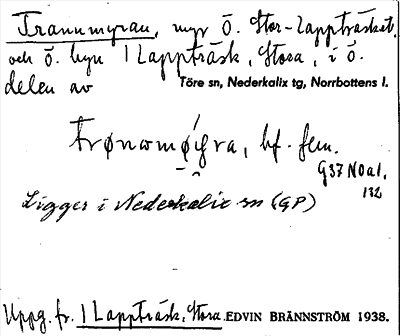 Trannmyran, myr Ö. Stor-Lappträsket,
och ö. byn 1 Lappträsk, Stora, i ö.
delen av Töre sn, Nederkalix tg, Norrbottens l.
bf. fem.
G37 N0a1.
132
Ligger i Nederkalix sn (GP)
Uppg. fr. 1 Lappträsk, Stora. EDVIN BRÄNNSTRÖM 1938.